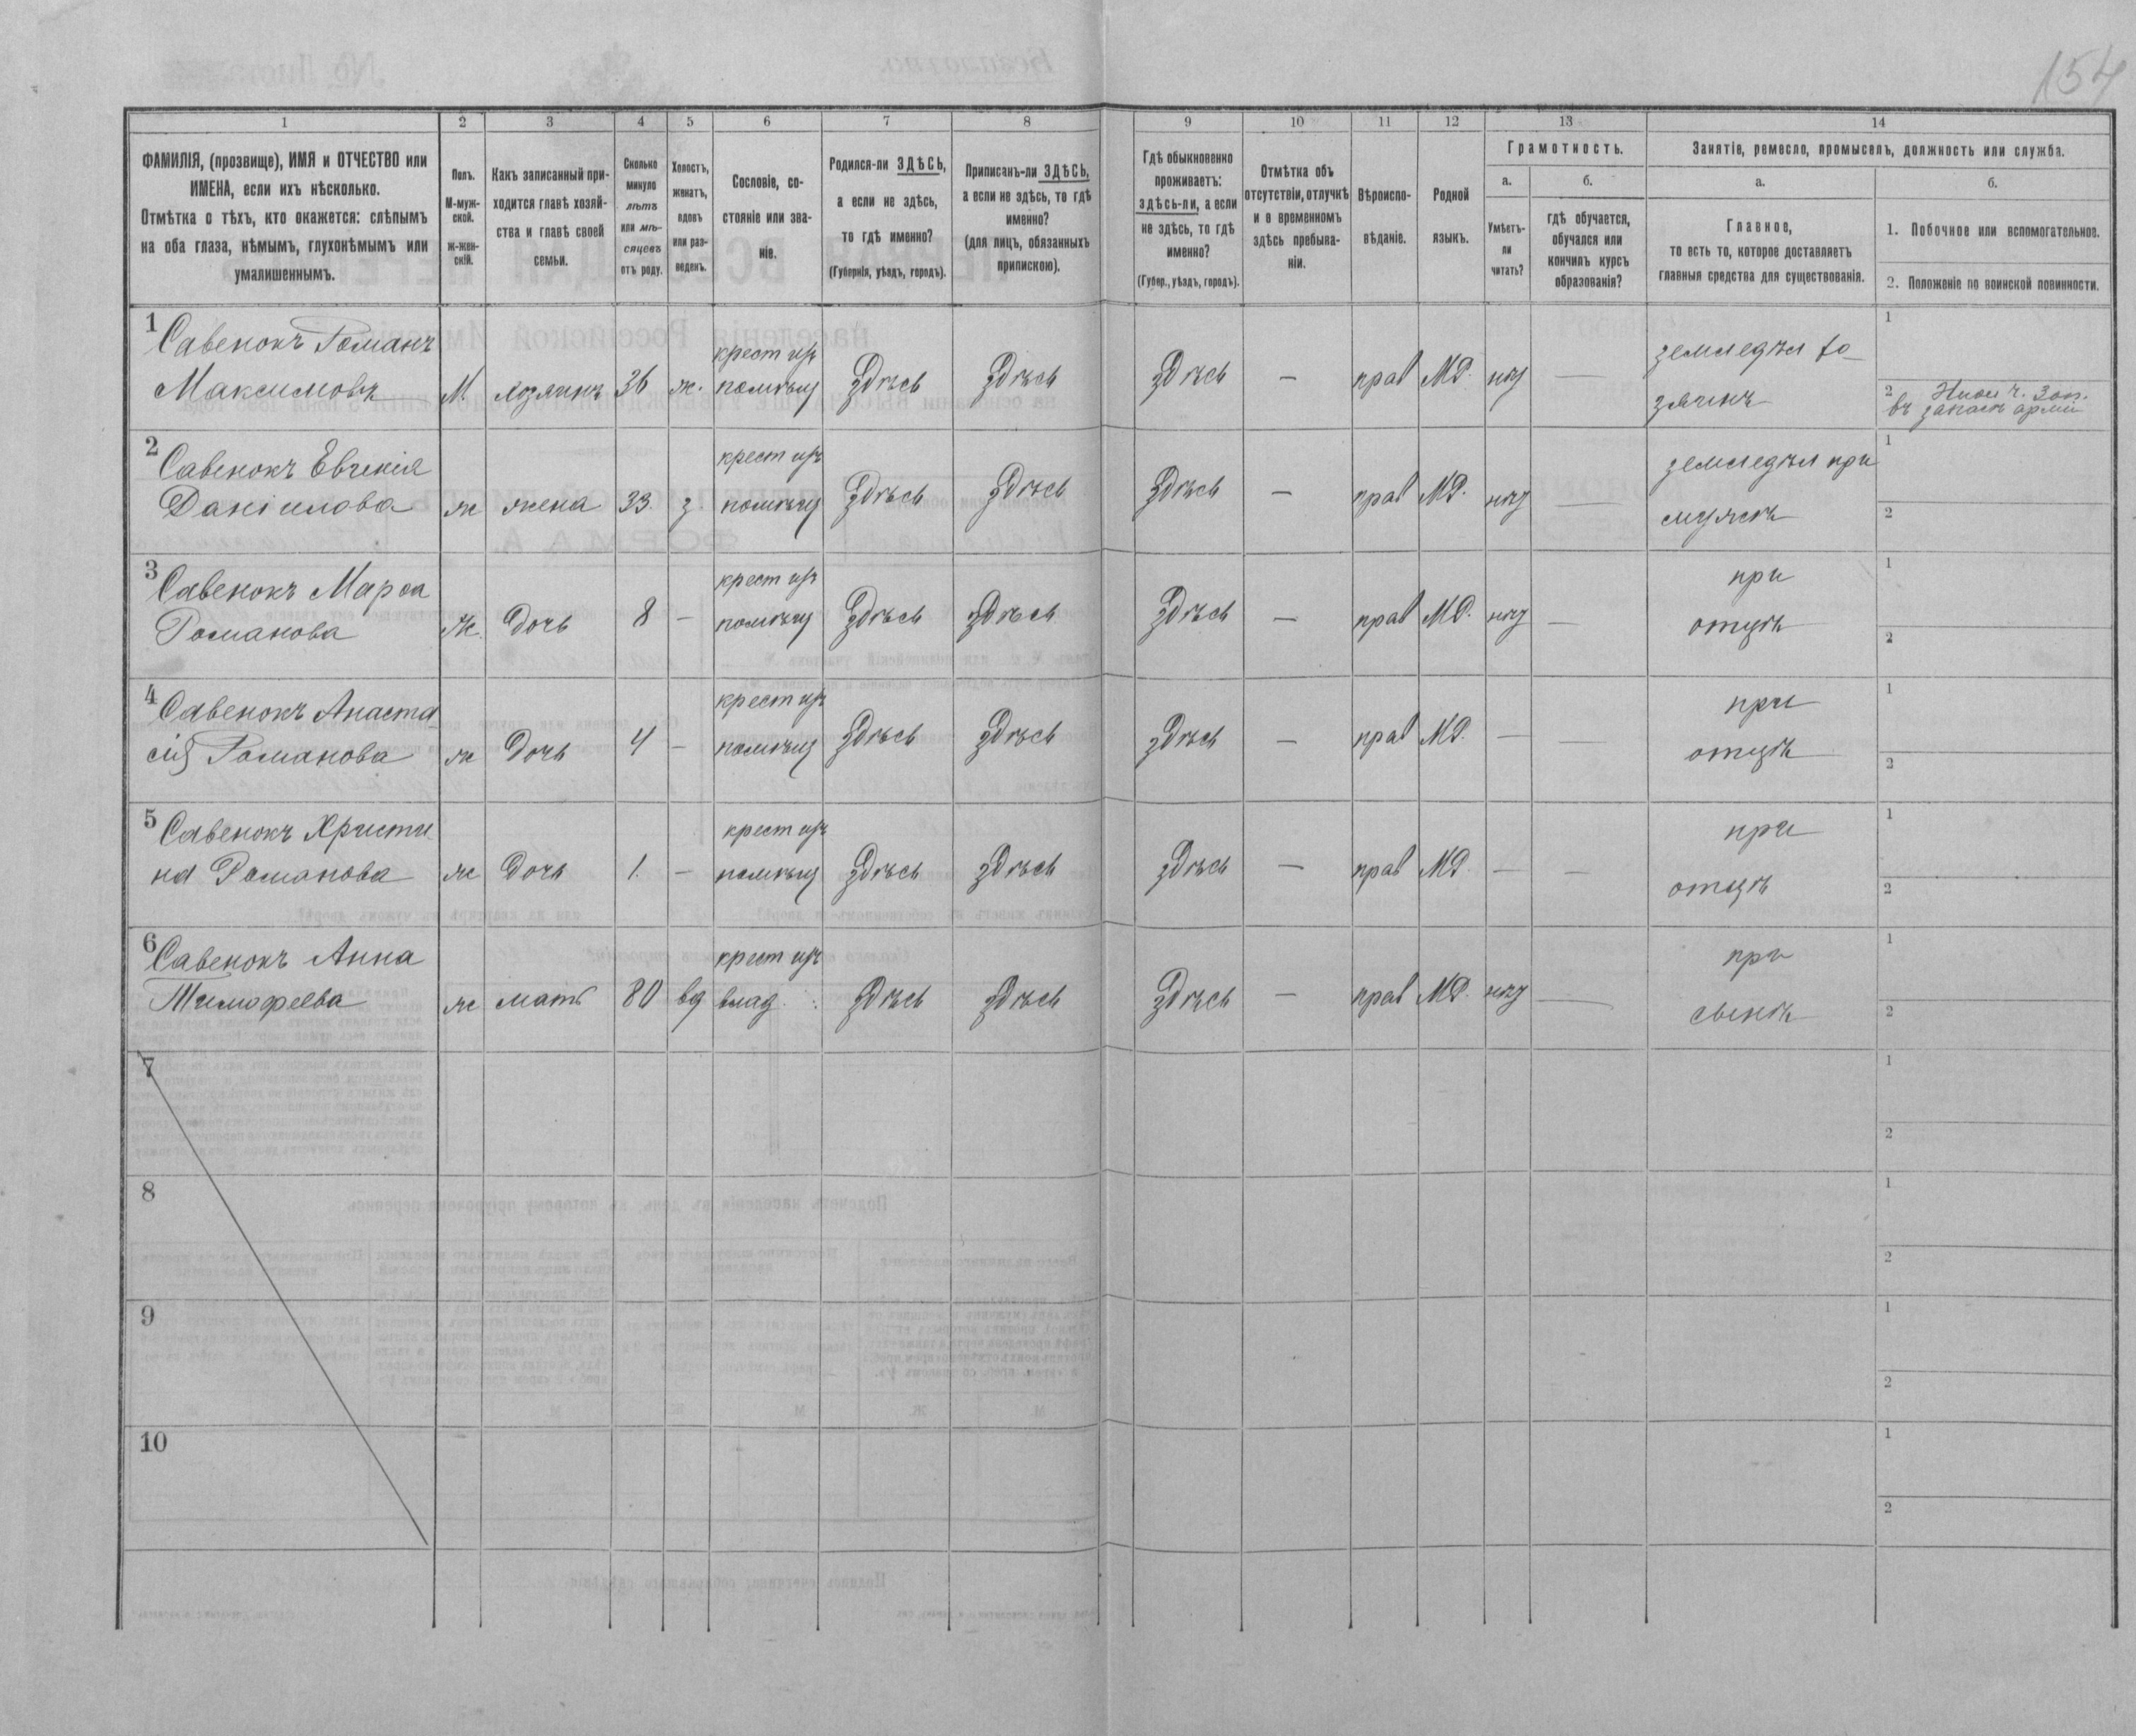 154
1
2
3
4
5
6
7
8
9
10
11
12
13
14
ФАМИЛІЯ, (прозвище), ИМЯ и ОТЧЕСТВО или
ИМЕНА, если ихъ нѣсколько.
Отмѣтка о тѣхъ, кто окажется: слѣпымъ
на оба глаза, нѣмымъ, глухонѣмымъ или
умалишеннымъ.
Полъ.
М-муж-
ской.
Ж-жен-
скій.
Какъ записанный при-
ходится главѣ хозяй-
ства и главѣ своей
семьи.
Сколько
минуло
лѣтъ
или мѣ-
сяцевъ
отъ роду.
Холостъ,
женатъ,
вдовъ
или раз-
веденъ.
Сословіе, со-
стояніе или зва-
ніе.
Родился-ли ЗДѢСЬ,
а если не здѣсь,
то гдѣ именно?
(Губернія, уѣздъ, городъ).
Приписанъ-ли ЗДѢСЬ,
а если не здѣсь, то гдѣ
именно?
(для лицъ, обязанныхъ
припискою).
Гдѣ обыкновенно
проживаетъ:
здѣсь-ли, а если
не здѣсь, то гдѣ
именно?
(Губер., уѣздъ, городъ).
Отмѣтка объ
отсутствіи, отлучкѣ
и о временномъ
здѣсь пребыва-
ніи.
Вѣроиспо-
вѣданіе.
Родной
языкъ.
Грамотность.
а.
б.
Умѣетъ-
ли
читать?
гдѣ обучается,
обучался или
кончилъ курсъ
образованія?
Занятіе, ремесло, промыселъ, должность или служба.
а.
б.
Главное,
то есть то, которое доставляетъ
главныя средства для существованія.
1. Побочное или вспомогательное.
2. Положеніе по воинской повинности.
1 Савенокъ Романъ
Максимовъ
М. хозяинъ 36 ж.
крест изъ
помѣщ
Здѣсь Здѣсь Здѣсь — прав МР. нѣт —
земледѣл хо-
зяинъ
1
2
въ запасѣ арміи
2 Савенокъ Евгенія
Даніилова
ж жена 33. з.
крест изъ
помѣщ
Здѣсь Здѣсь Здѣсь — прав МР. нѣт —
земледѣл при
мужѣ
1
2
3 Савенокъ Марѳа
Романова
Ж. Дочь 8 —
крест изъ
помѣщ
Здѣсь Здѣсь Здѣсь — прав МР. нѣт —
при
отцѣ
1
2
4 Савенокъ Анаста
сія Романова
ж Дочь 4 —
крест изъ
помѣщ
Здѣсь Здѣсь Здѣсь — прав МР. — —
при
отцѣ
1
2
5 Савенокъ Христи
на Романова
ж Дочь 1. —
крест изъ
помѣщ
Здѣсь Здѣсь Здѣсь — прав МР. — —
при
отцѣ
1
2
6 Савенокъ Анна
Тимофеева
ж мать 80 вд
крест изъ
влад.
Здѣсь Здѣсь Здѣсь — прав МР. нѣт —
при
сынѣ
1
2
7
1
2
8
1
2
9
1
2
10
1
2